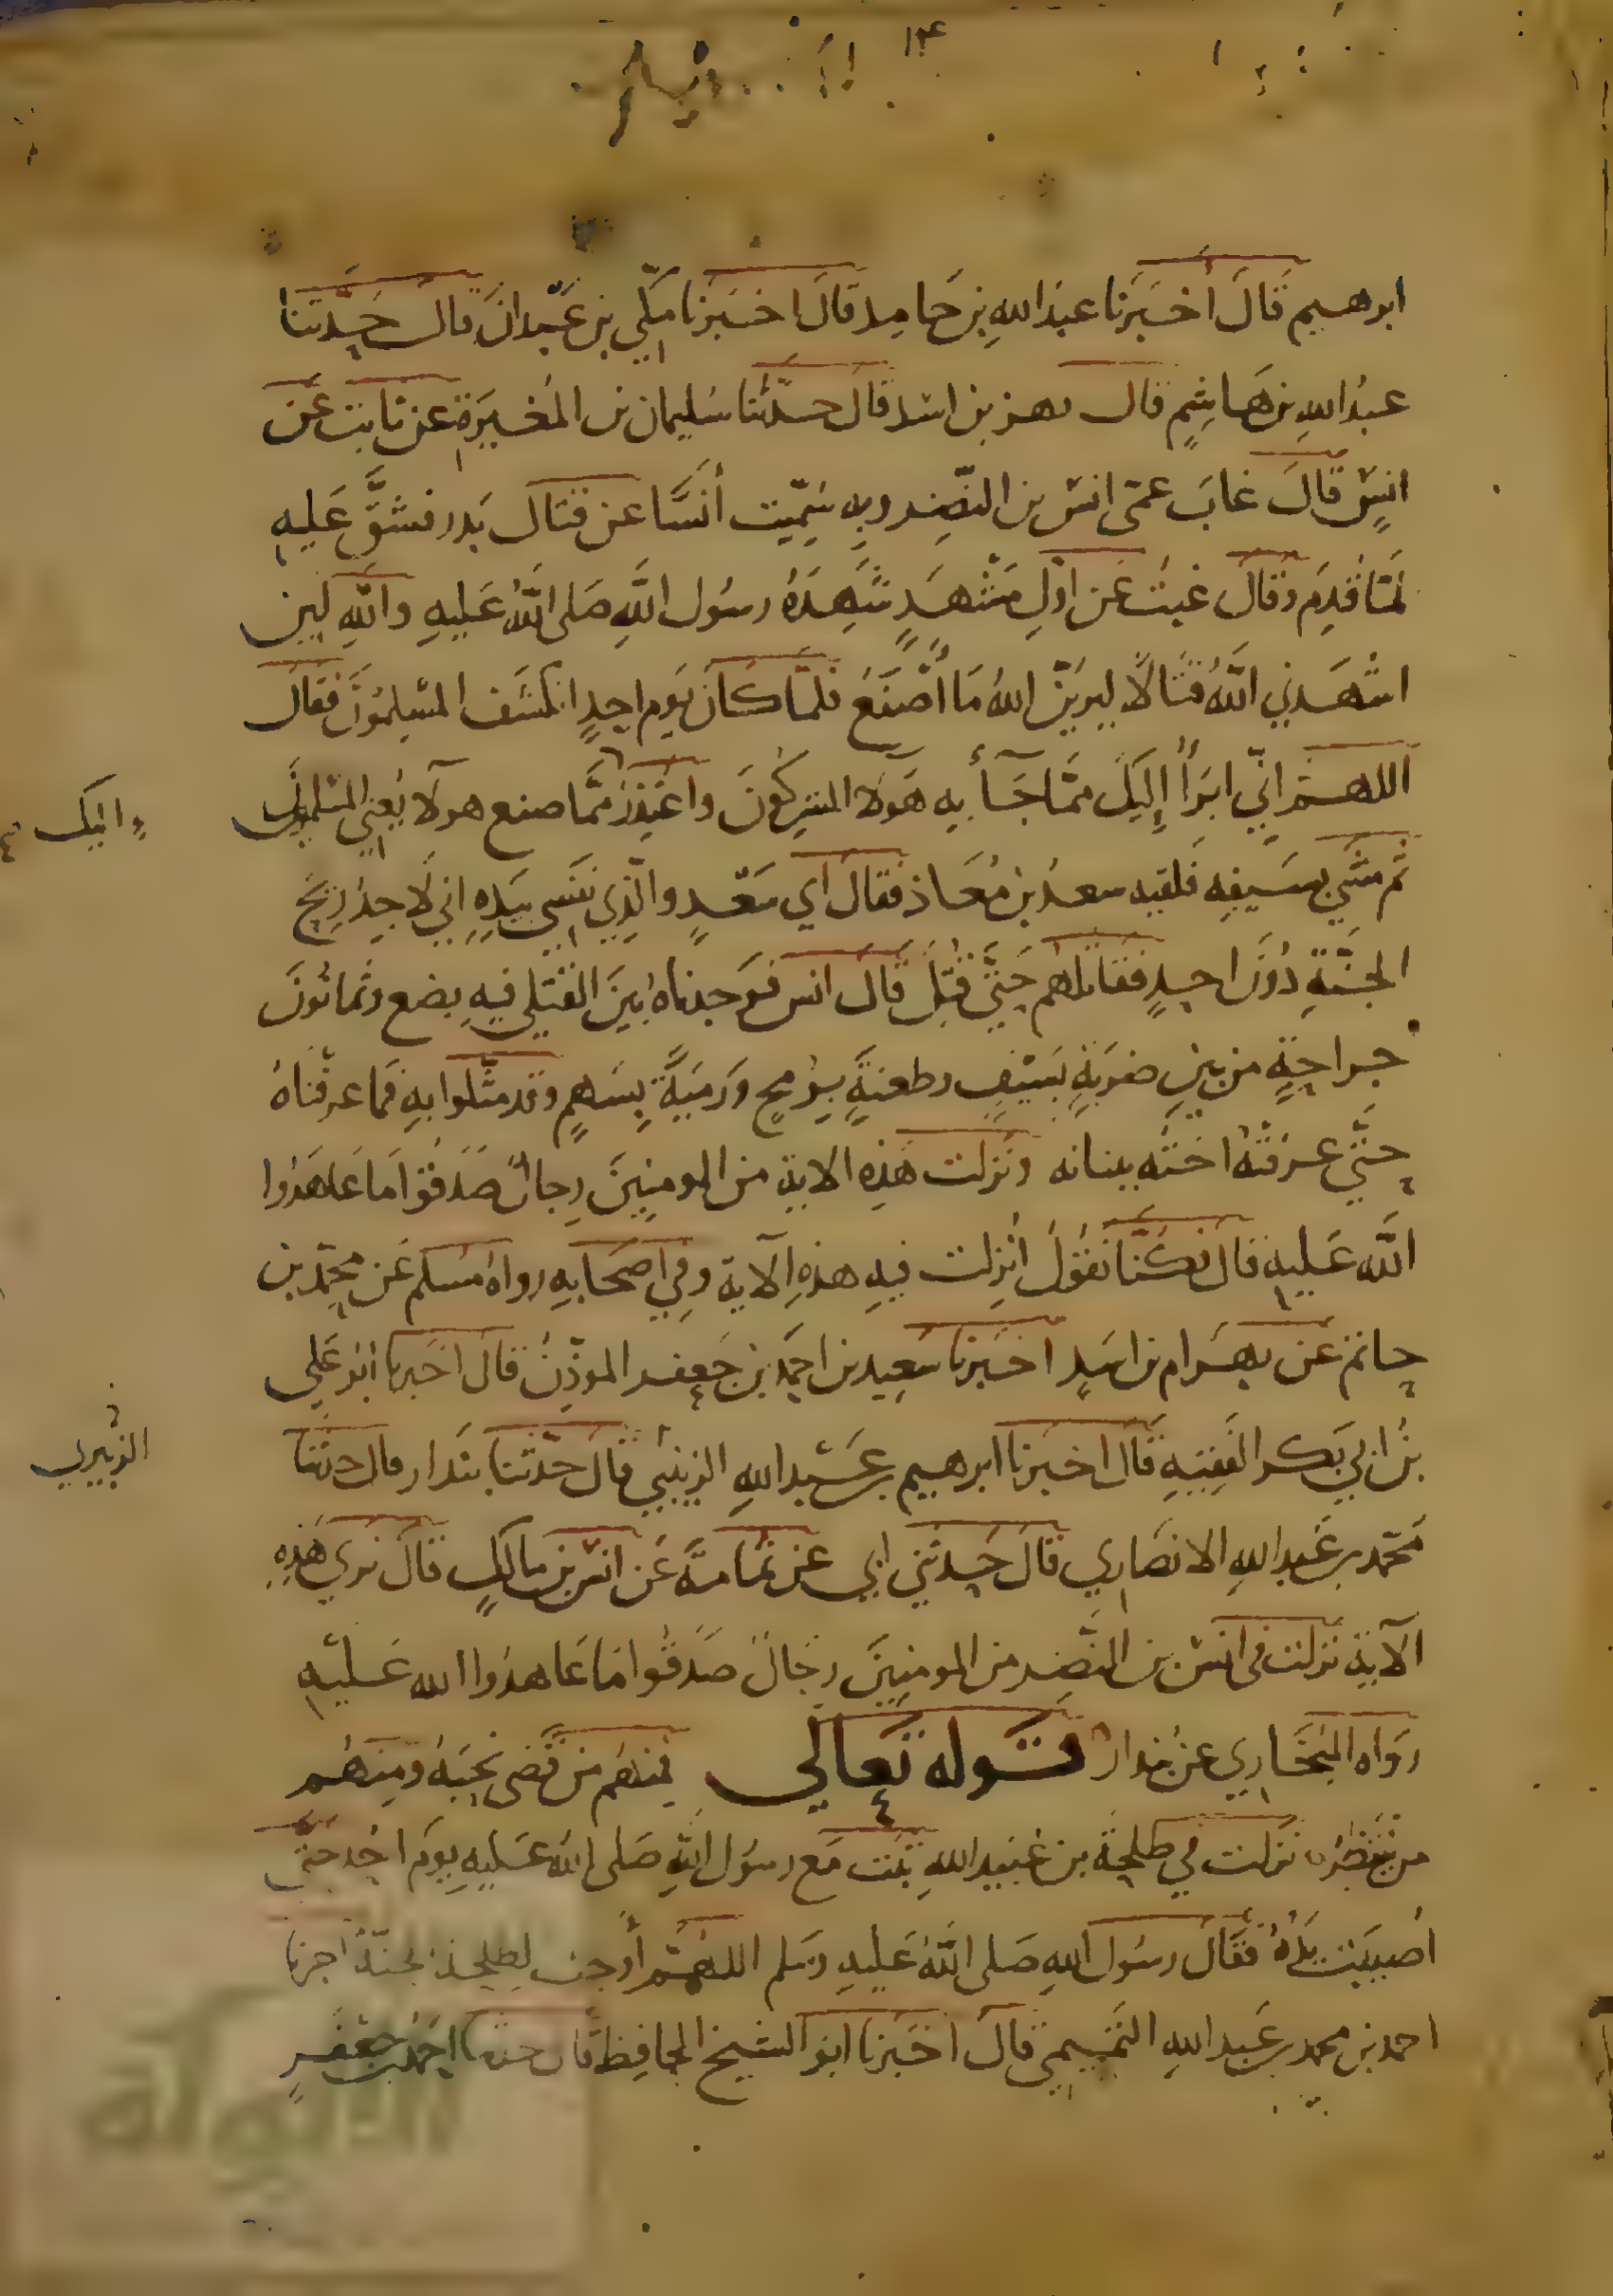 ١٤
ابرهيم قَالَ أخبَرَنا عبدَ اللهِ بن حَامِد قَالَ اخبَرَنا مكّي بن عَبدانَ قال حَدَّثنا
عبدُ اللهِ بن هَاشِمٍ قال بهز بن اسَد قال حدّثنا سُليمان بن المُغيرَةِ عن ثابت عَن
انسٍ قالَ غابَ عمّى انس بن النَضِر وبِهِ سُمِّيت أنَسًا عن قتال بَدر فشقَّ عَليه
لمّا قدِمَ وقال غبتُ عَن اوّلِ مَشْهَدٍ شَهِدَهُ رسُول اللَّهِ صَلى اللَّهُ عَليهِ واللهِ لين
اشهَدني اللَّهُ قتَالًا ليريَنّ اللهُ مَا أصْنَعُ فلمّا كانَ يَوم احدٍ انكشَف المسْلِمُونَ فقال
اللهم انّي ابرَأُ إليكَ ممّا جَآءَ بِهِ هَولآ المشركُونَ واعتذرُ ممَّا صنع هولآ يَعني المسْلمونَ
واليك
ثم مشَي بسَيفِه فلقيه سعدُ بن مُعَاذ فقال اي سَعْدٍ والَّذِي نفسي بيَدِهِ اني لاجِدُ ريحَ
الجنَّةِ دُوُنَ احدٍ فقاتلهُم حَتَّى قُتِلَ قال انس فوَجدناه بينَ القتلي فيهِ بضع وثمانُونَ
جراحةٍ من بينِ ضربَةٍ بسَيْفٍ وطعنةٍ برُمحٍ ورَميَةٍ بِسَهمٍ وقد مثّلوا بهِ فما عرفناهُ
حتَّي عرفتْهُ اختُه ببنانه ونَزلت هَذِه الاية من المومنِينَ رِجالٌ صَدَقوُا مَا عَاهَدُوا
اللَّه عَليهِ قال فكُنَّا نَقُولُ انُزِلت فيهِ هذهِ الآية وفي اصحَابهِ رواهُ مسُلم عَن محمّد بن
حاتم عَن بهرَام بن اسَدٍ اخبَرنا سَعِيد بن احمَد بن جَعفر الموذّنُ قال اخبَرنا ابوُ عَلي
بنُ ابي بَكر الفَقِيهِ قَال اخبَرنا ابرهيم بن عَبْد اللهِ الزينبيُ قال حَدّثنا بندار قال حدثنا
الزُبيري
محمّد بن عَبد اللهِ الانصَاري قالَ حَدثني ابي عن ثمَامةَ عَن انس بن مالكٍ قال نري هَذِهِ
الآيةِ نزلت في انس بن النَّضِر من المومنِينَ رجَالٌ صَدقُوا مَا عَاهدُوا الله عَليْهِ
رَوَاه البُخَاري عنُ بندار قوله تعالي فمنهُم مَن قضى نحبَهُ ومِنهُم
من ينتظرُ نزلت في طلحة بن عُبَيد اللهِ ثبت مَع رسُول اللهِ صَلى اللهُ عَليهِ يومَ احُد حتّى
اُصيبَت يَدُهُ فقال رسُول اللهِ صَلى اللَّهُ عَليهِ وسَلم اللهُمّ أوجب لِطلحة الجنّةُ اخبرنا
احمد بن محمد بن عَبد اللهِ التَميمي قالَ اخَبرنا ابو الشيخ الحافِظ قال حدثنا احمد بن جعفرٍ